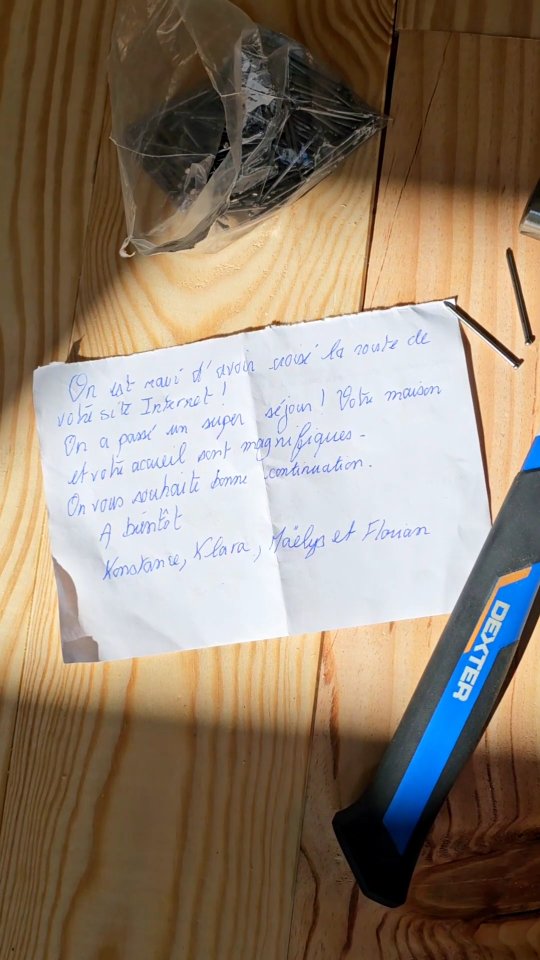 On est ravi d'avoir croisé la route de
votre site Internet !
On a passé un super séjour ! Votre maison
et votre accueil sont magnifiques.
On vous souhaite bonne continuation.
A bientôt
Konstance, Klara, Maëlys et Florian
DEXTER